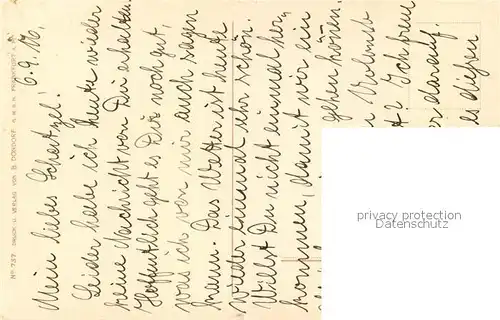 6.9.06.
Mein liebes Schatzel!
Leider habe ich heute wieder
keine Nachricht von Dir erhalten.
Hoffentlich geht es Dir noch gut,
was ich von mir auch sagen
kann. Das Wetter ist heute
wieder einmal sehr schön.
Willst Du nicht einmal her¬
kommen, damit wir ein
gehen könen.
Urlaub
? Ich freue
darauf.
es diesen
No 737 DRUCK U. VERLAG VON B. DONDORF, G.M.B.H. FRANKFURT A.
privacy protection
Datenschutz